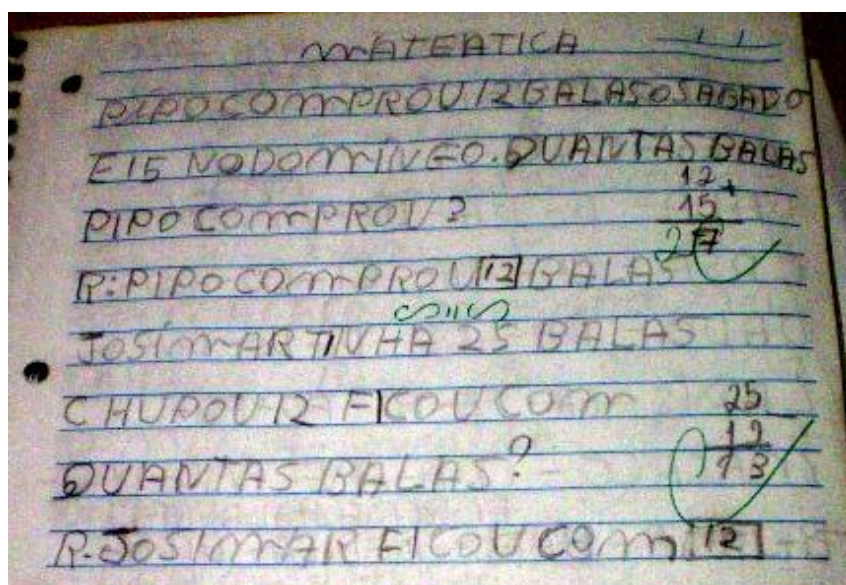 MATEATICA / /
PIPO COMPROU 12 BALAS O SABADO
E 15 NO DOMINGO. QUANTAS BALAS
PIPO COMPROU?
12 +
15
27
R: PIPO COMPROU 12 BALAS
JOSIMAR TINHA 25 BALAS
CHUPOU 12 FICOU COM
QUANTAS BALAS?
25
12
13
R- JOSIMAR FICOU COM 12